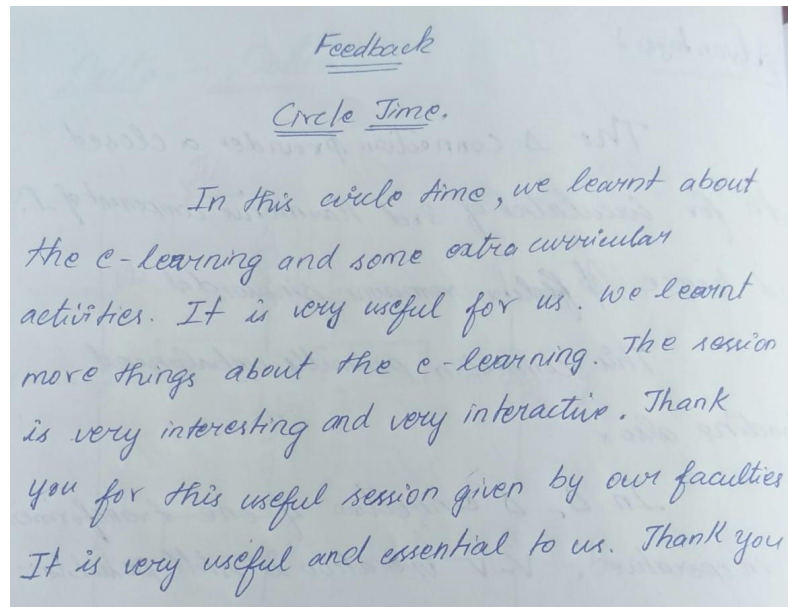 Feedback
Circle Time.
In this circle time, we learnt about
the e-learning and some extra curricular
activities. It is very useful for us. We learnt
more things about the e-learning. The session
is very interesting and very interactive. Thank
you for this useful session given by our faculties
It is very useful and essential to us. Thank you